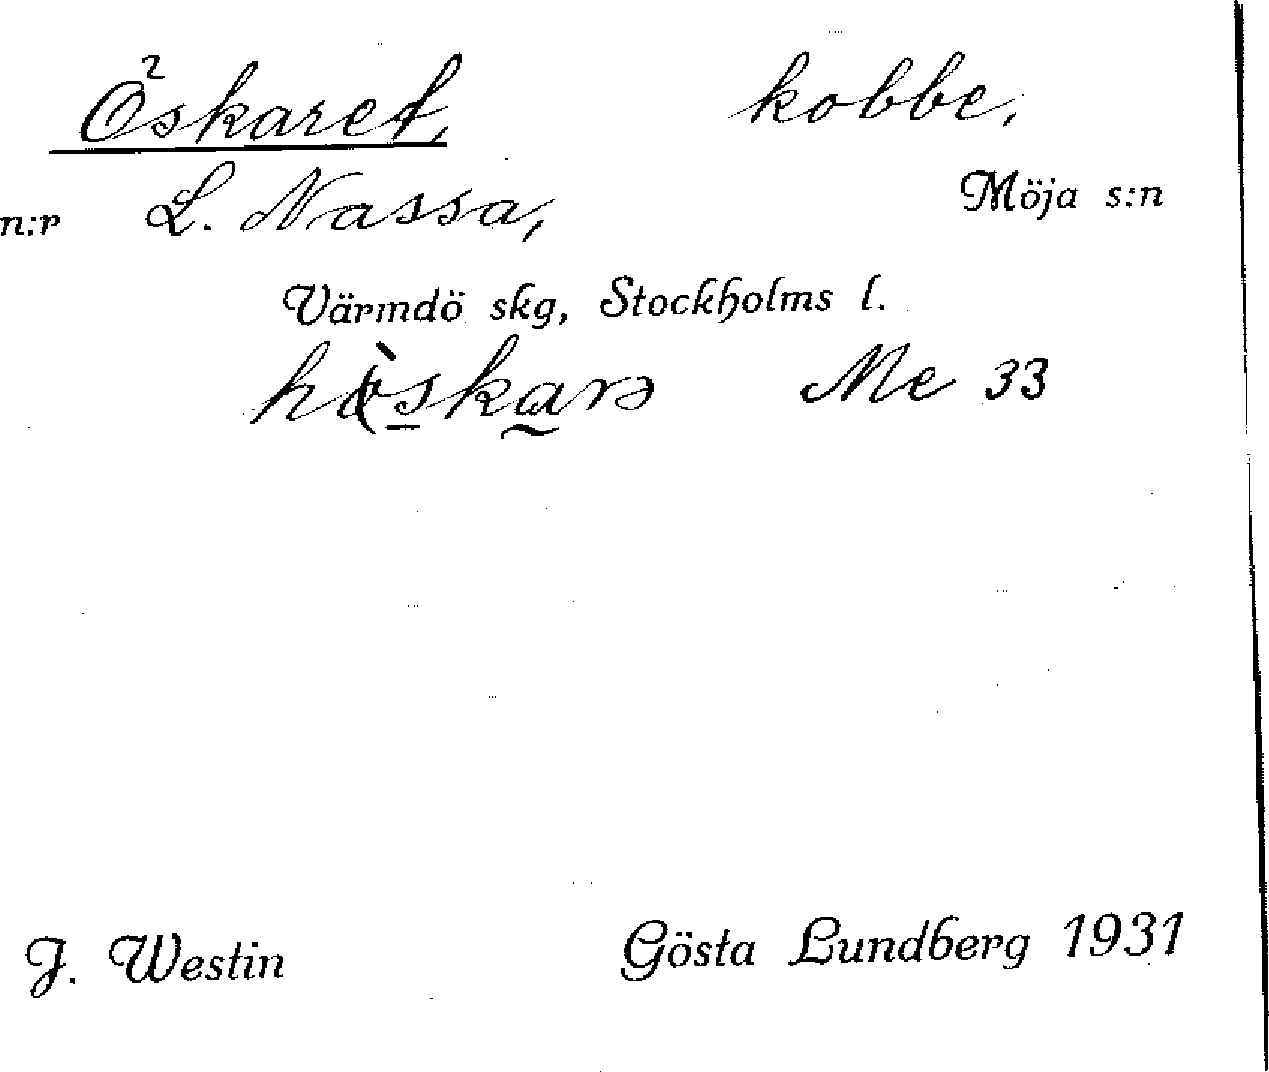 Öskaret, kobbe,
n:r L. Nassa, Möja s:n
Värmdö skg, Stockholms l.
Me 33
J. Westin Gösta Lundberg 1931